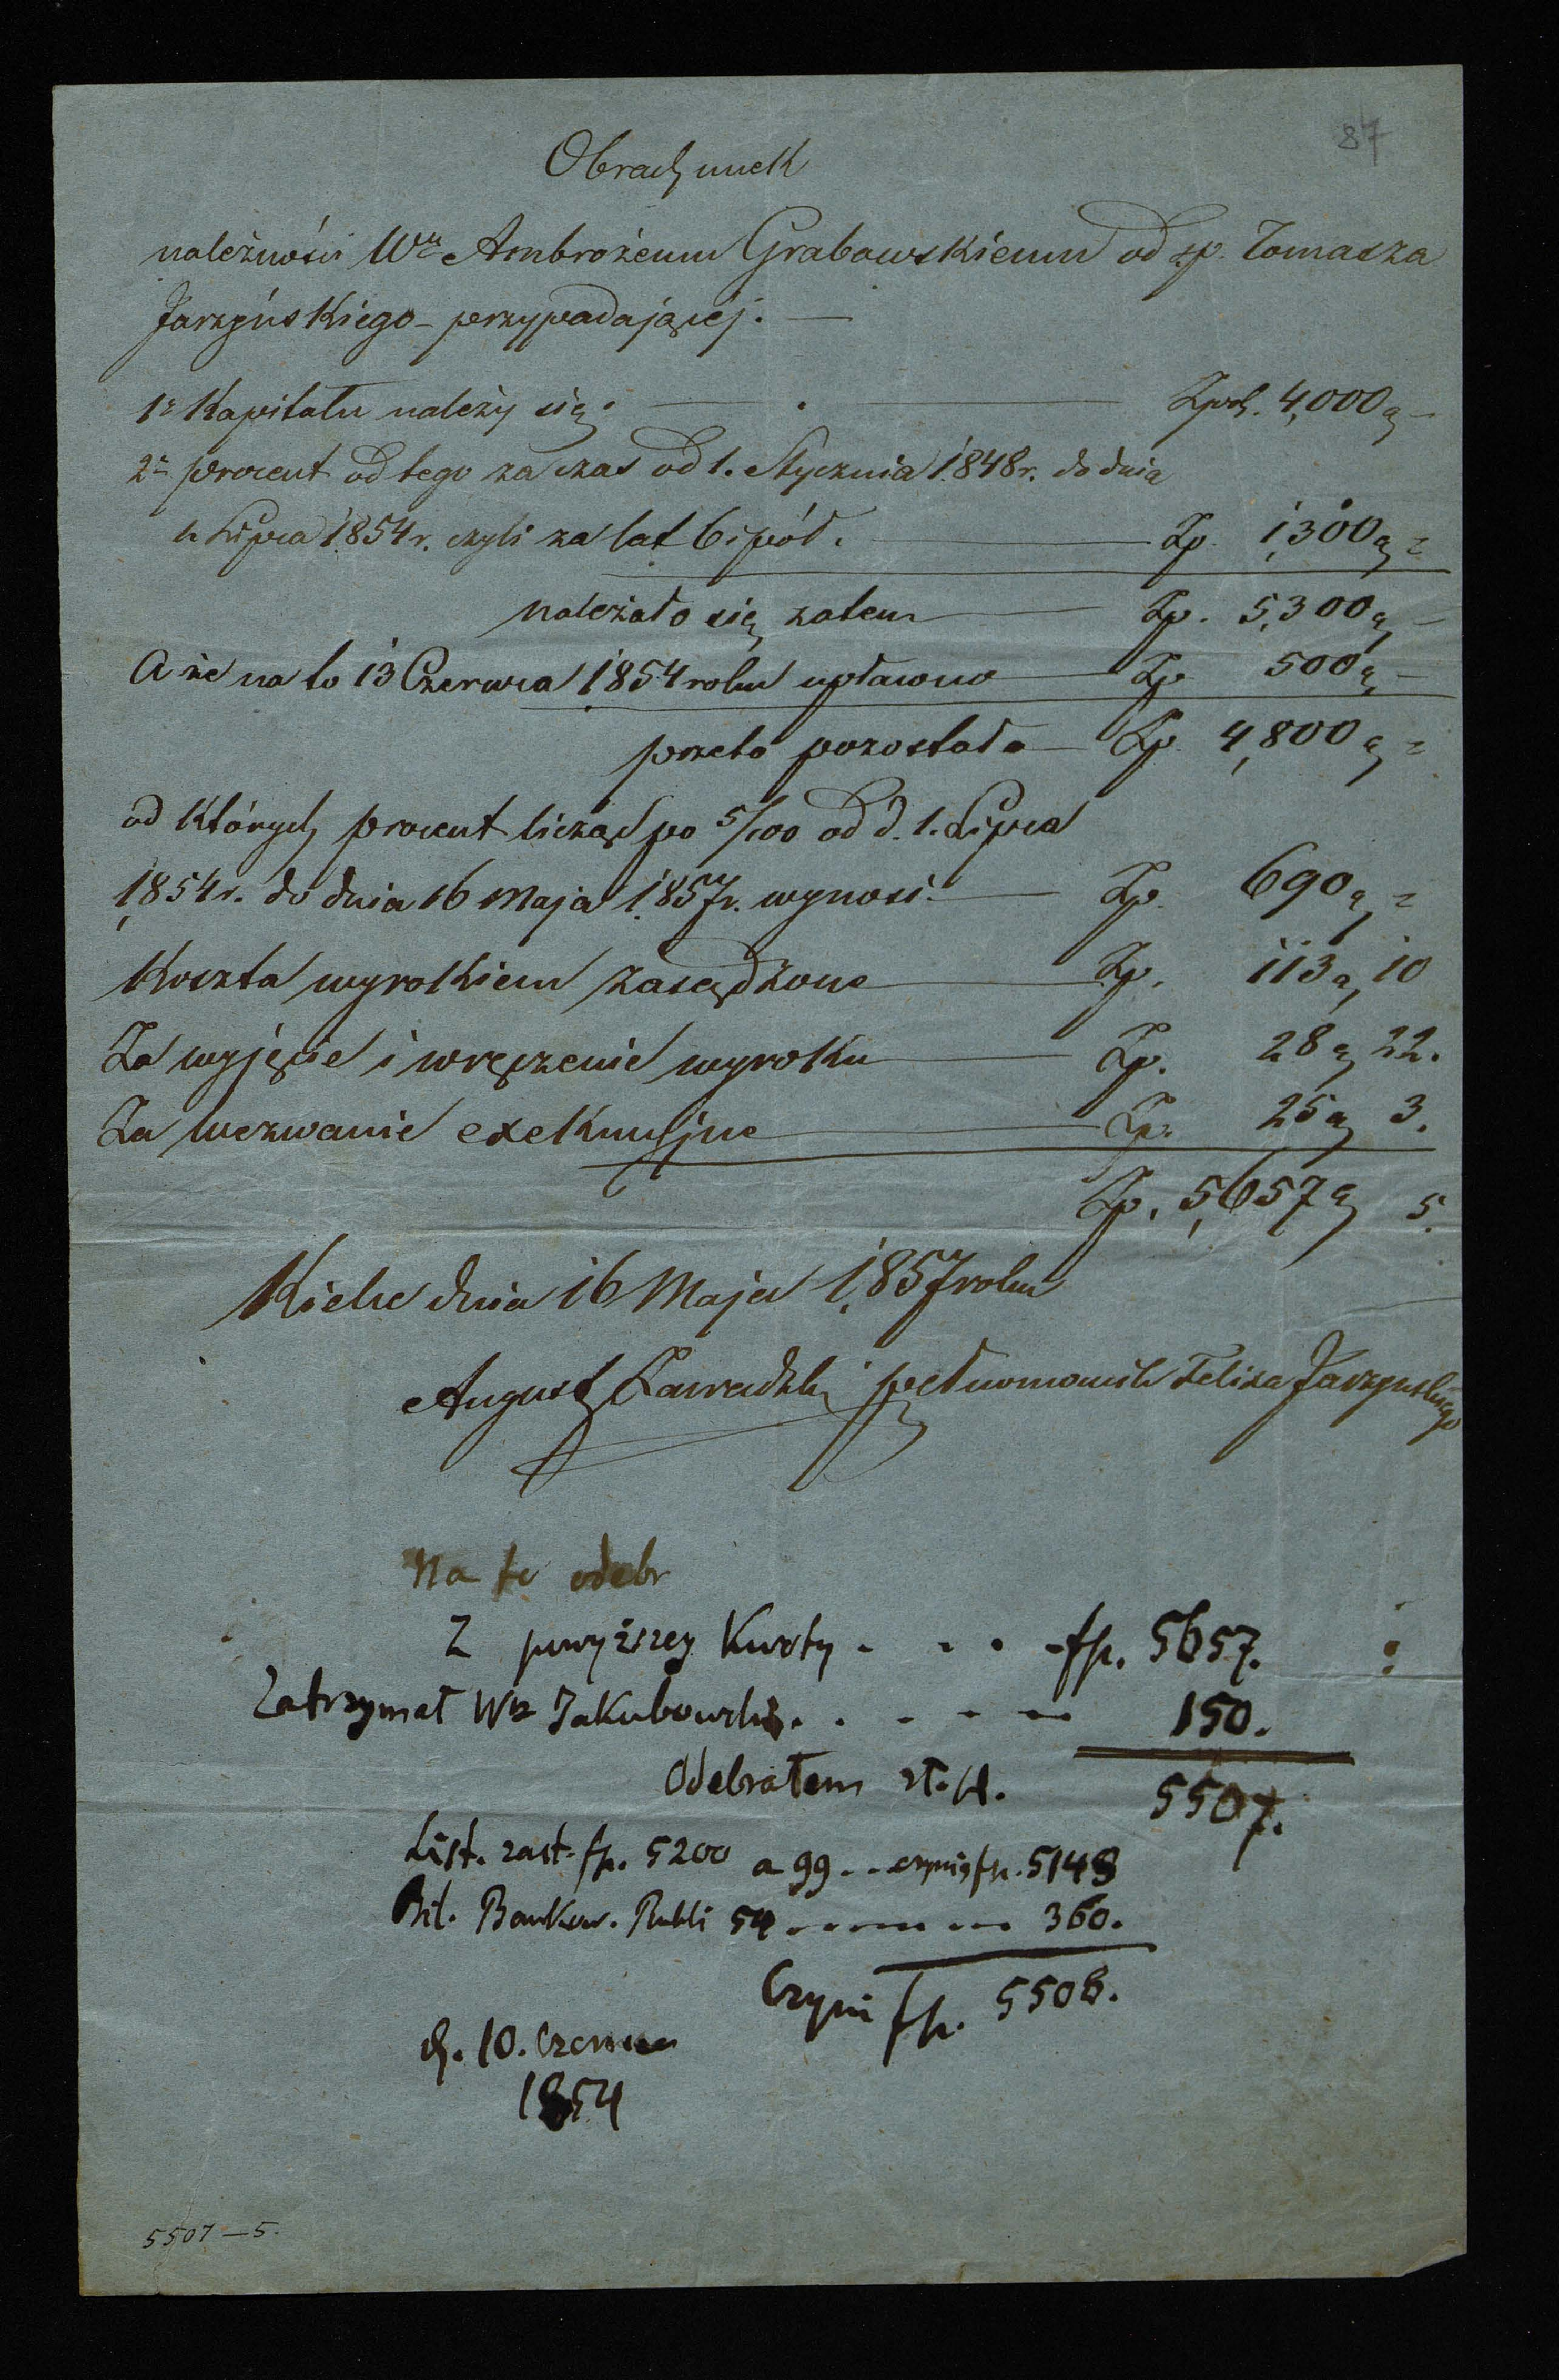 87
Obrachunek
należności Wu Ambrożemu Grabowskiemu od sp. Tomasza
Jarzyńskiego przypadającéj. —
1e Kapitału należy się . — Zpol. 4,000 g —
2e procent od tego za czas od 1. Stycznia 1848 r. do dnia
1. Lipca 1854 r. czyli za lat 6 i pół. — Zp. 1,300 g =
należało się zatem — Zp. 5,300 g —
A że na to 13 Czerwca 1854 roku upłacono — Zp. 500 g —
przeto pozostało — Zp. 4,800 g =
od których procent licząc po 5/100 od d. 1. Lipca
1854 r. do dnia 16 Maja 1857 r. wynosi — Zp. 690 g =
Koszta wyrokiem zasądzone — Zp. 113 g 10
Za wyjęcie i wręczenie wyroku — Zp. 28 g 22.
Za wezwanie exekucyjne — Zp. 25 g 3.
Zp. 5,657 g 5.
Kielce dnia 16 Maja 1857 roku
August Zawadzki pełnomocnik Felixa Jarzyńskiego
Na to odebr
Z powyższey Kwoty . . . . fp. 5657.
Zatrzymał Wr Jakubowski . . . . . 150.
Odebrałem zł. pl. 5507.
List. zast. fp. 5200 a 99 . . czynią fp. 5148
Bil. Bankow. Rubli 54 . . . . . . 360.
Czyni fp. 5508.
d. 10. Czerwca
1854
5507 — 5.